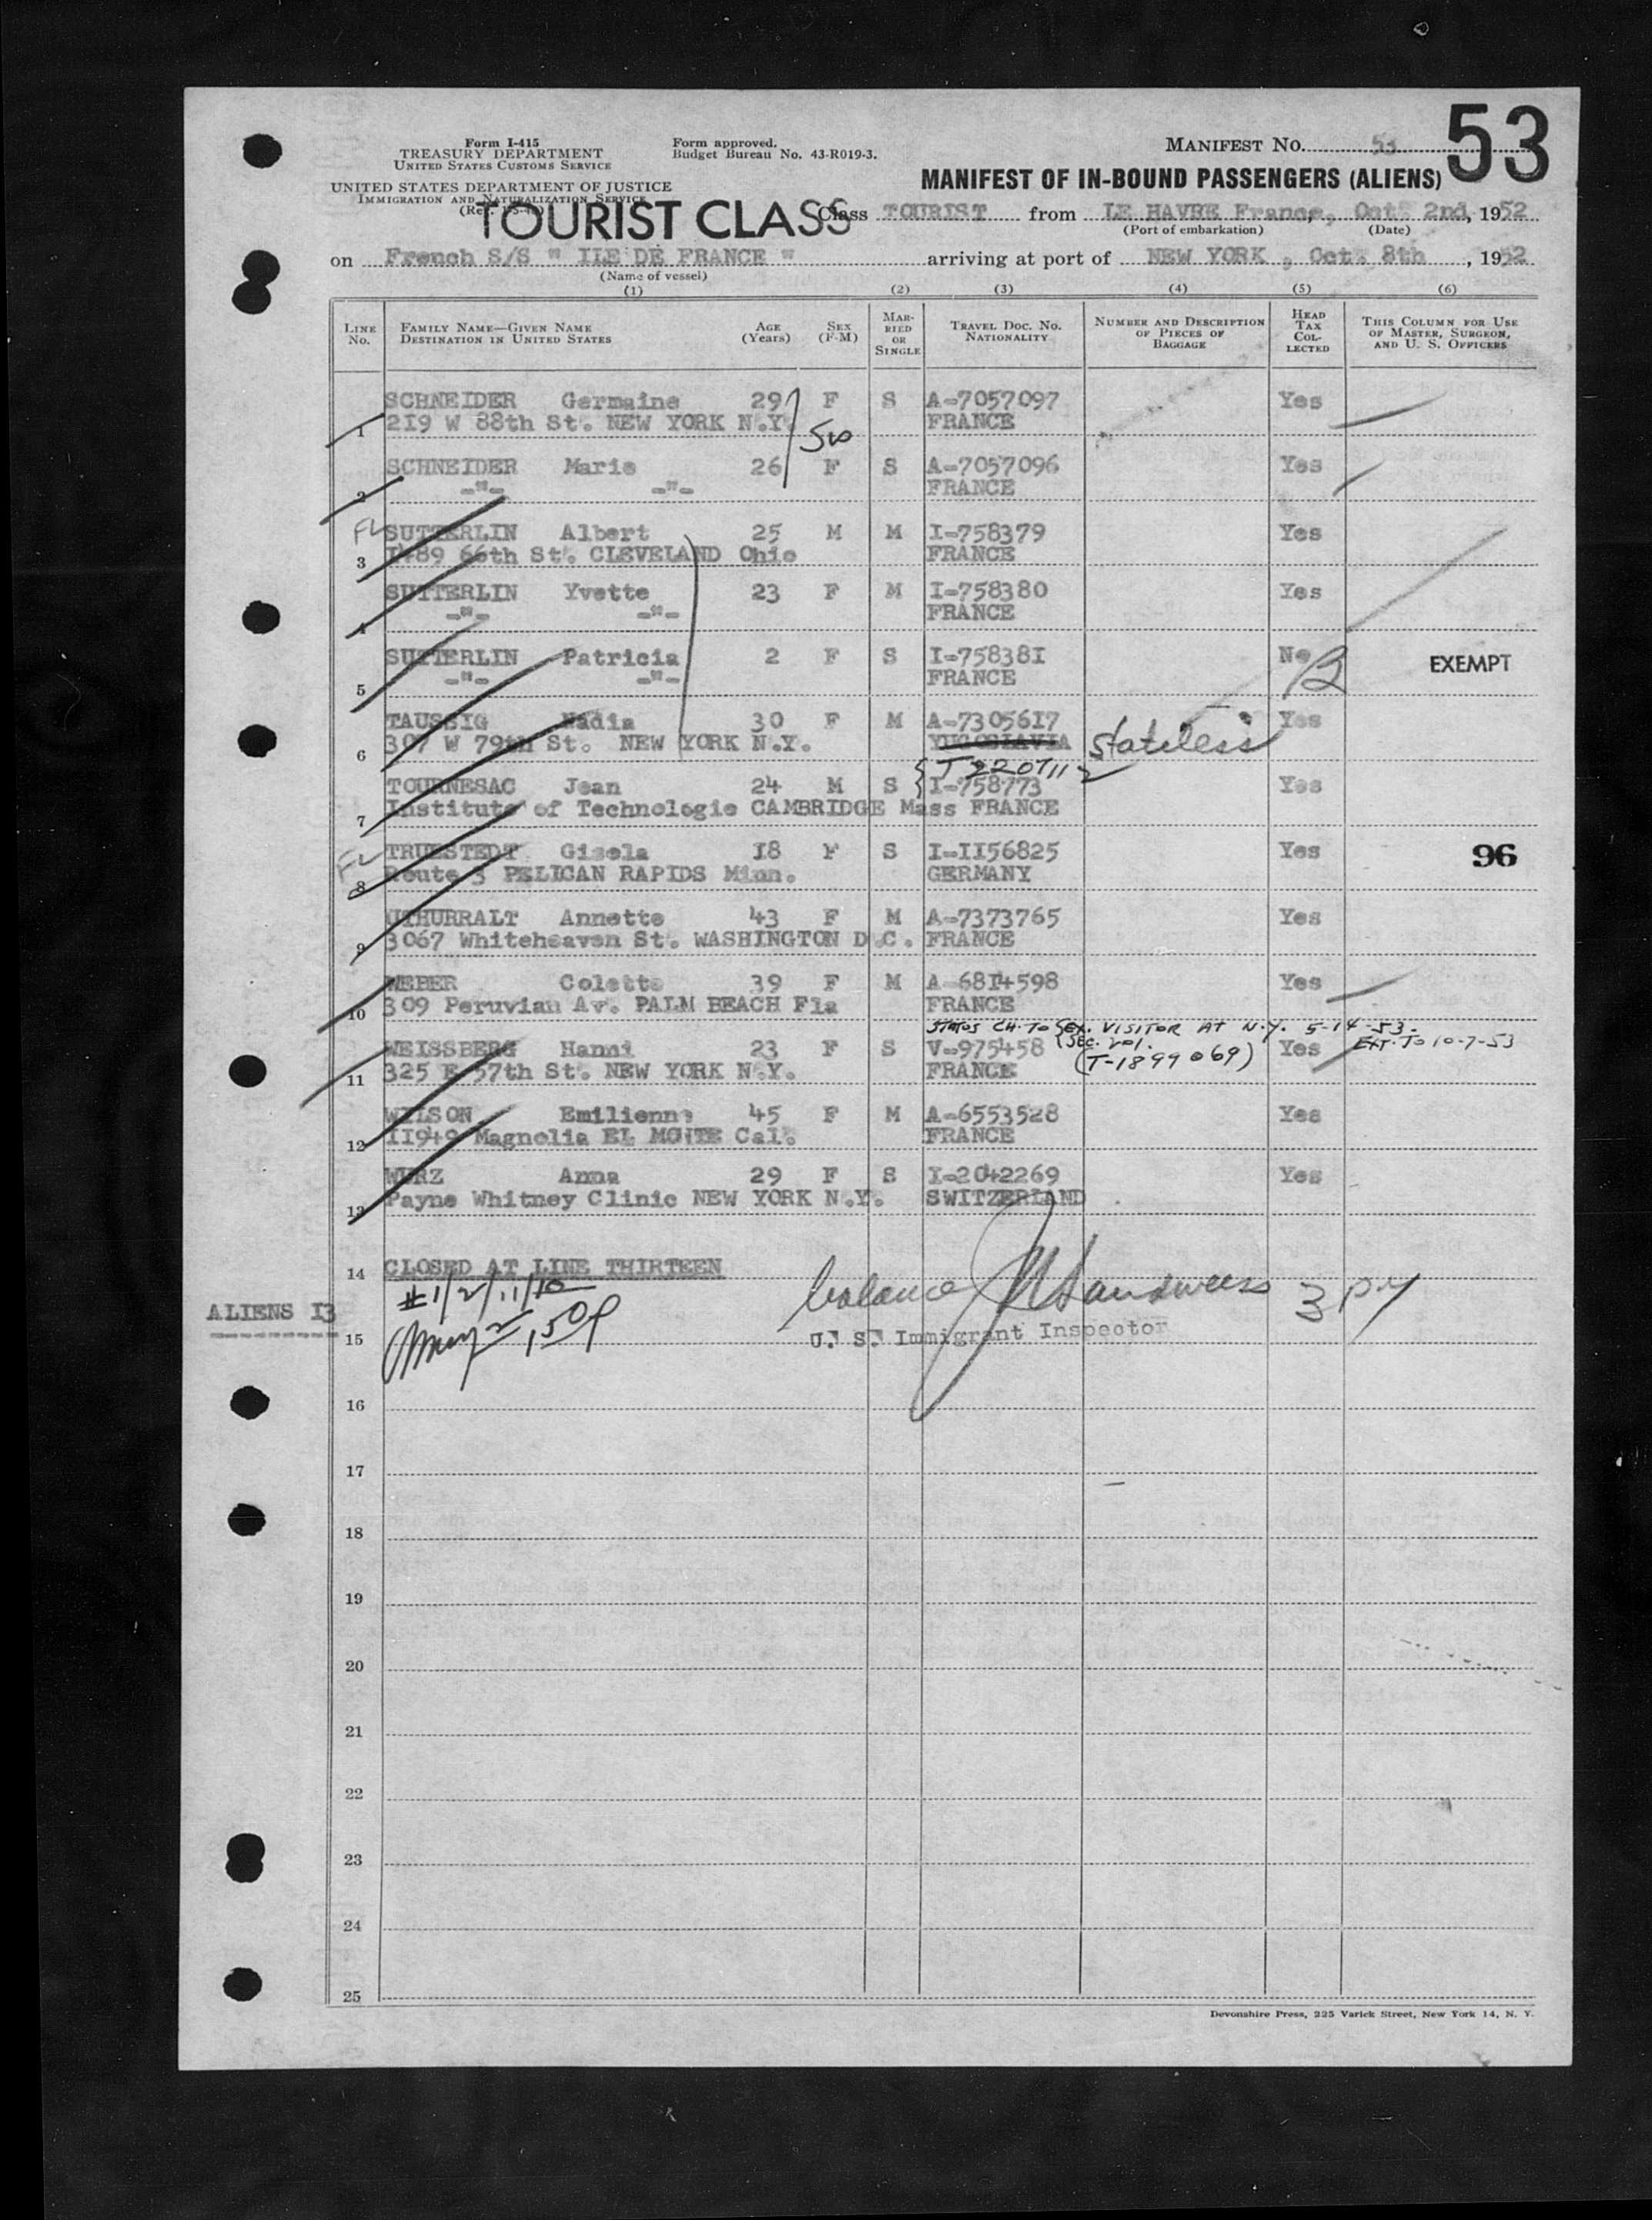 53
Form I-415
TREASURY DEPARTMENT
UNITED STATES CUSTOMS SERVICE
Form approved.
Budget Bureau No. 43-R019-3.
MANIFEST NO. 53
UNITED STATES DEPARTMENT OF JUSTICE
IMMIGRATION AND NATURALIZATION SERVICE
MANIFEST OF IN-BOUND PASSENGERS (ALIENS)
TOURIST CLASS
Class TOURIST from LE HAVRE France, Oct. 2nd, 1952
(Port of embarkation) (Date)
on French S/S " ILE DE FRANCE " arriving at port of NEW YORK , Oct. 8th , 1952
(Name of vessel)
(1) (2) (3) (4) (5) (6)
LINE No. FAMILY NAME—GIVEN NAME DESTINATION IN UNITED STATES AGE (Years) SEX (F-M) MARRIED OR SINGLE TRAVEL DOC. NO. NATIONALITY NUMBER AND DESCRIPTION OF PIECES OF BAGGAGE HEAD TAX COLLECTED THIS COLUMN FOR USE OF MASTER, SURGEON, AND U. S. OFFICERS
SCHNEIDER Germaine 29 F S A-7057097 Yes
1 219 W 88th St. NEW YORK N.Y. FRANCE
SCHNEIDER Marie 26 F S A-7057096 Yes
2 -"- -"- FRANCE
SUTTERLIN Albert 25 M M I-758379 Yes
3 1489 66th St. CLEVELAND Ohio FRANCE
SUTTERLIN Yvette 23 F M I-758380 Yes
4 -"- -"- FRANCE
SUTTERLIN Patricia 2 F S I-758381 No EXEMPT
5 -"- -"- FRANCE
TAUSSIG Nadia 30 F M A-7305617 Yes
6 307 W 79th St. NEW YORK N.Y. YUGOSLAVIA stateless
T 220711
TOURNESAC Jean 24 M S I-758773 Yes
7 Institute of Technologie CAMBRIDGE Mass FRANCE
TRUESTEDT Gisela 18 F S I-II56825 Yes 96
8 Route 3 PELICAN RAPIDS Minn. GERMANY
UTHURRALT Annette 43 F M A-7373765 Yes
9 3067 Whiteheaven St. WASHINGTON D.C. FRANCE
WEBER Colette 39 F M A-6814598 Yes
10 309 Peruvian Av. PALM BEACH Fla FRANCE
STATUS CH. TO SEC. VISITOR AT N.Y. 5-14-53.
SEC. 201. EXT. TO 10-7-53
WEISSBERG Hanni 23 F S V-975458 (T-1899069) Yes
11 325 E 57th St. NEW YORK N.Y. FRANCE
WILSON Emilienne 45 F M A-6553528 Yes
12 11949 Magnolia EL MONTE Cal. FRANCE
WURZ Anna 29 F S I-2042269 Yes
13 Payne Whitney Clinic NEW YORK N.Y. SWITZERLAND
14 CLOSED AT LINE THIRTEEN
#1/2/11/10
balance
3 P.M
ALIENS 13
15 U. S. Immigrant Inspector
16
17
18
19
20
21
22
23
24
25
Devonshire Press, 225 Varick Street, New York 14, N. Y.